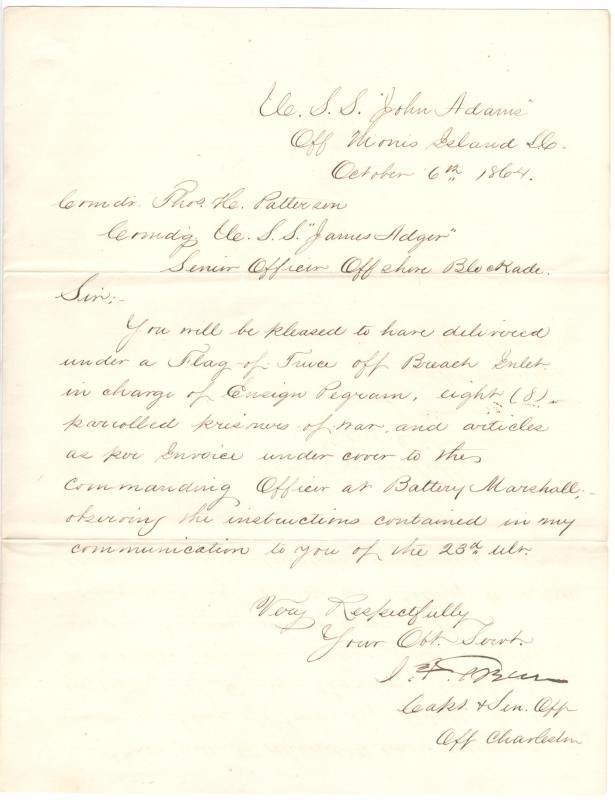 U. S. S. "John Adams"
Off Morris Island S.C.
October 6th 1864.
Comdr. Thos. H. Patterson
Comdg U. S. S. "James Adger"
Senior Officer Off shore Blockade.
Sir:-
You will be pleased to have delivered
under a Flag of Truce off Breach Inlet
in charge of Ensign Pegram, eight (8)
parolled prisners of war, and articles
as per Invoice under cover to the
Commanding Officer at Battery Marshall,-
observing the instructions contained in my
communication to you of the 23d ult.
Very Respectfully
Your Obt. Servt.
J. F. Green
Capt. & Sen. Off
Off Charleston